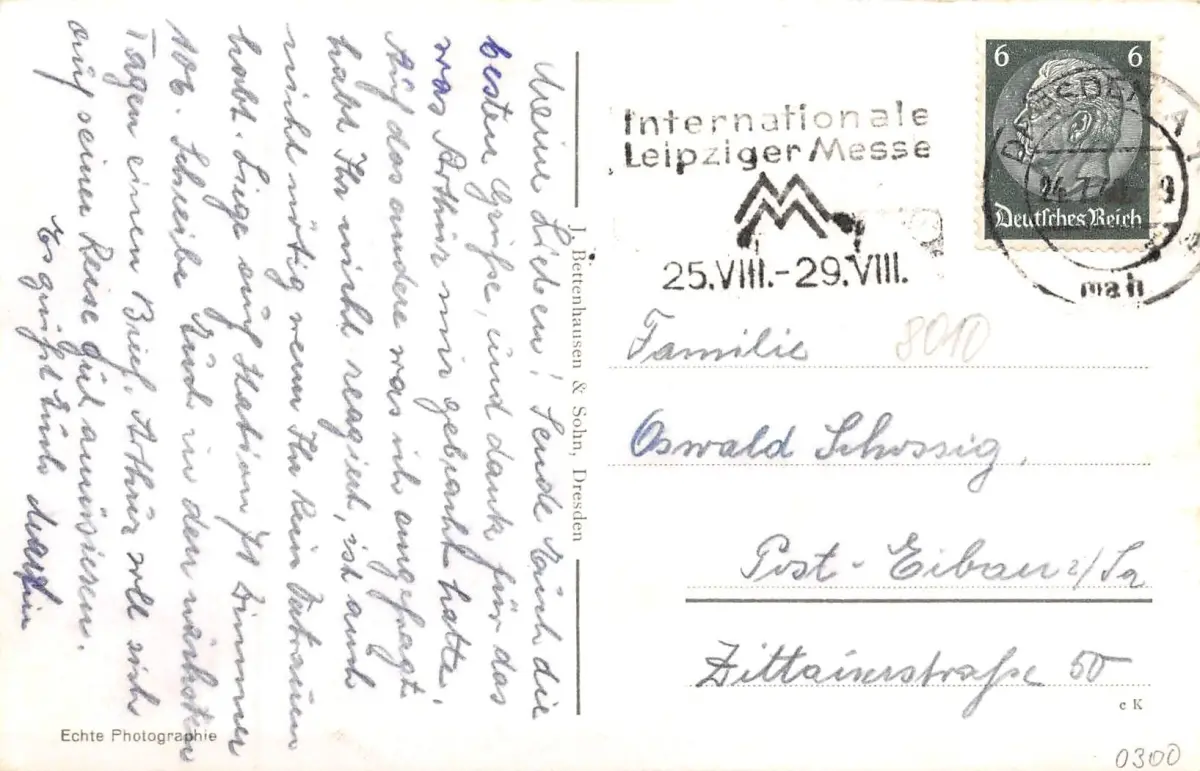 Meine Lieben! Sende Euch die
besten Grüße, und dank für das
was Arthur mir gebracht hatte.
Auf das andere was ich angefragt
habt Ihr nicht reagiert, ist auch
nicht nötig wenn Ihr kein Zutrauen
habt. Liege auf Station Zimmer
106. Schreibe Euch in den nächsten
Tagen einen Brief, Arthur soll sich
auf seiner Reise gut amüsieren.
Es grüßt Euch Martin
Echte Photographie
J. Bettenhausen & Sohn, Dresden
Internationale
Leipziger Messe
25.VIII.-29.VIII.
6 6
Deutsches Reich
DRESDEN
Familie
8010
Oswald Schossig,
Post-Eibau i/Sa
Zittauerstraße 50
c K
0300